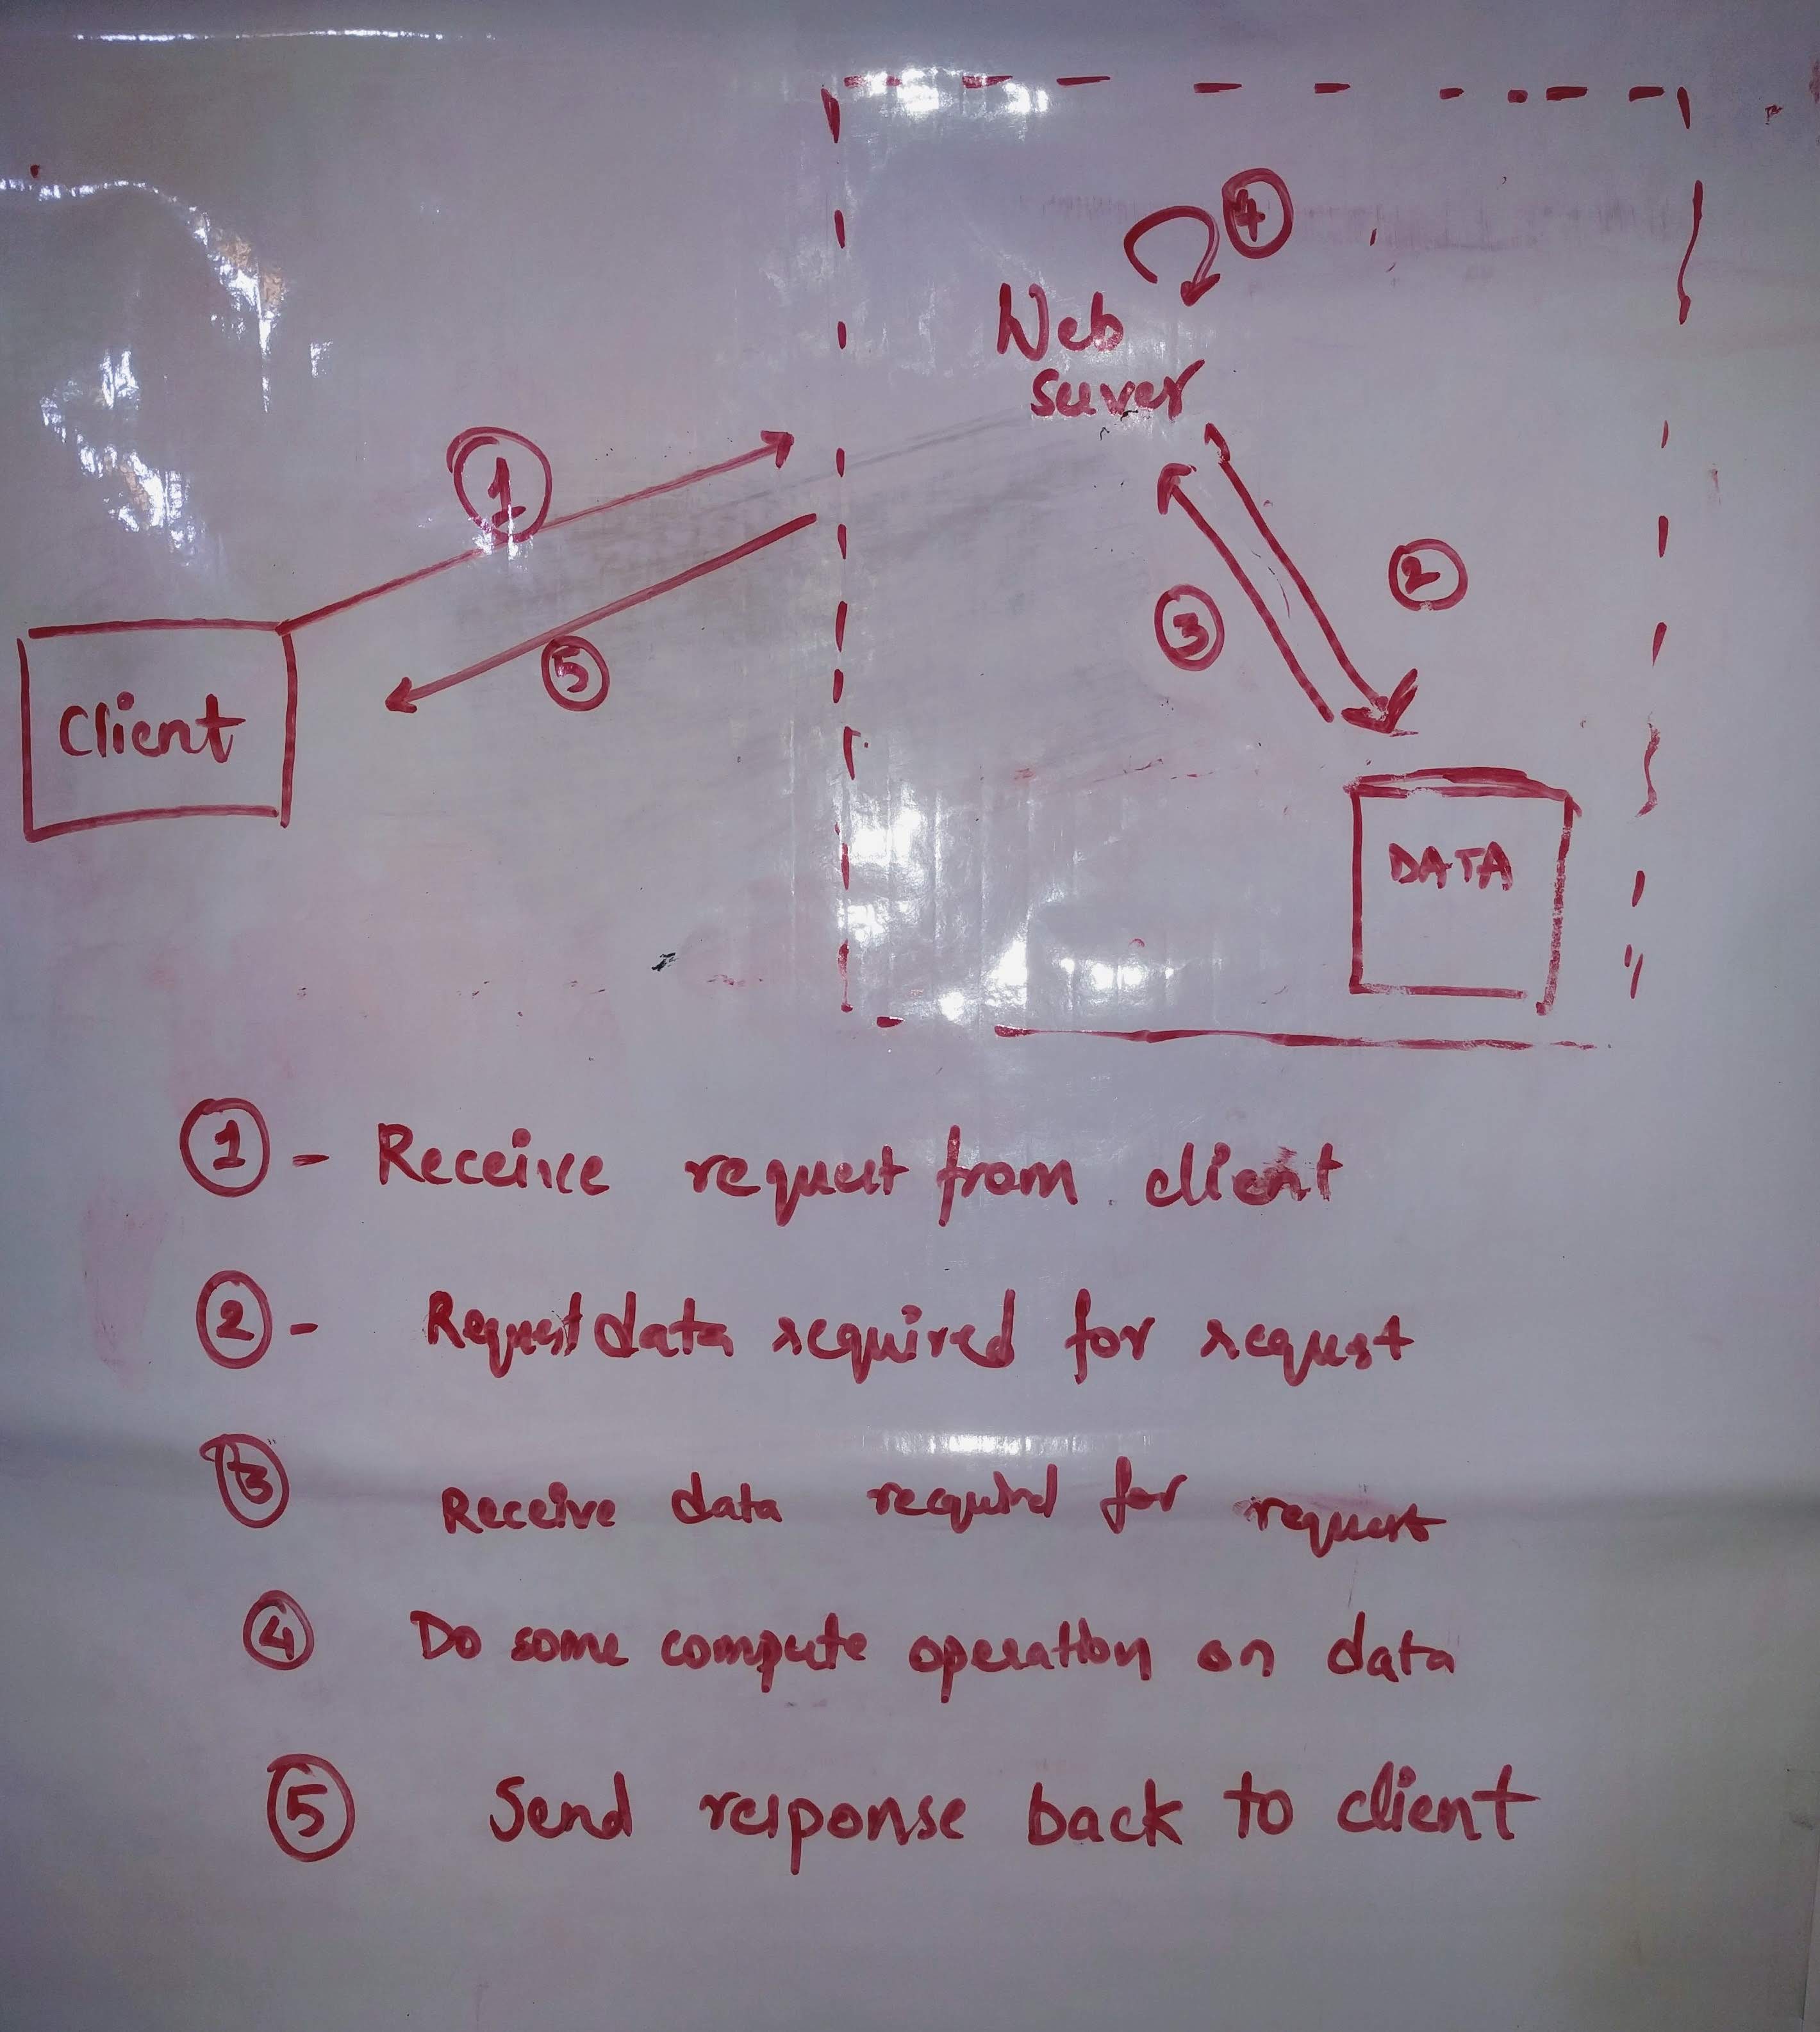 4
Web
server
1
2
3
5
Client
DATA
1 - Receive request from client
2 - Request data required for request
3 Receive data required for request
4 Do some compute operation on data
5 Send response back to client